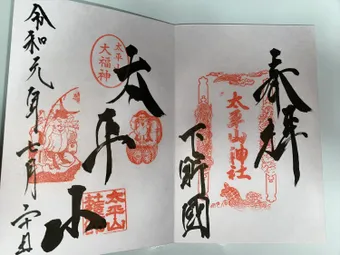 奉拝
太平山神社
下野國
太平山
大福神
太平山
太平山
令和元年七月